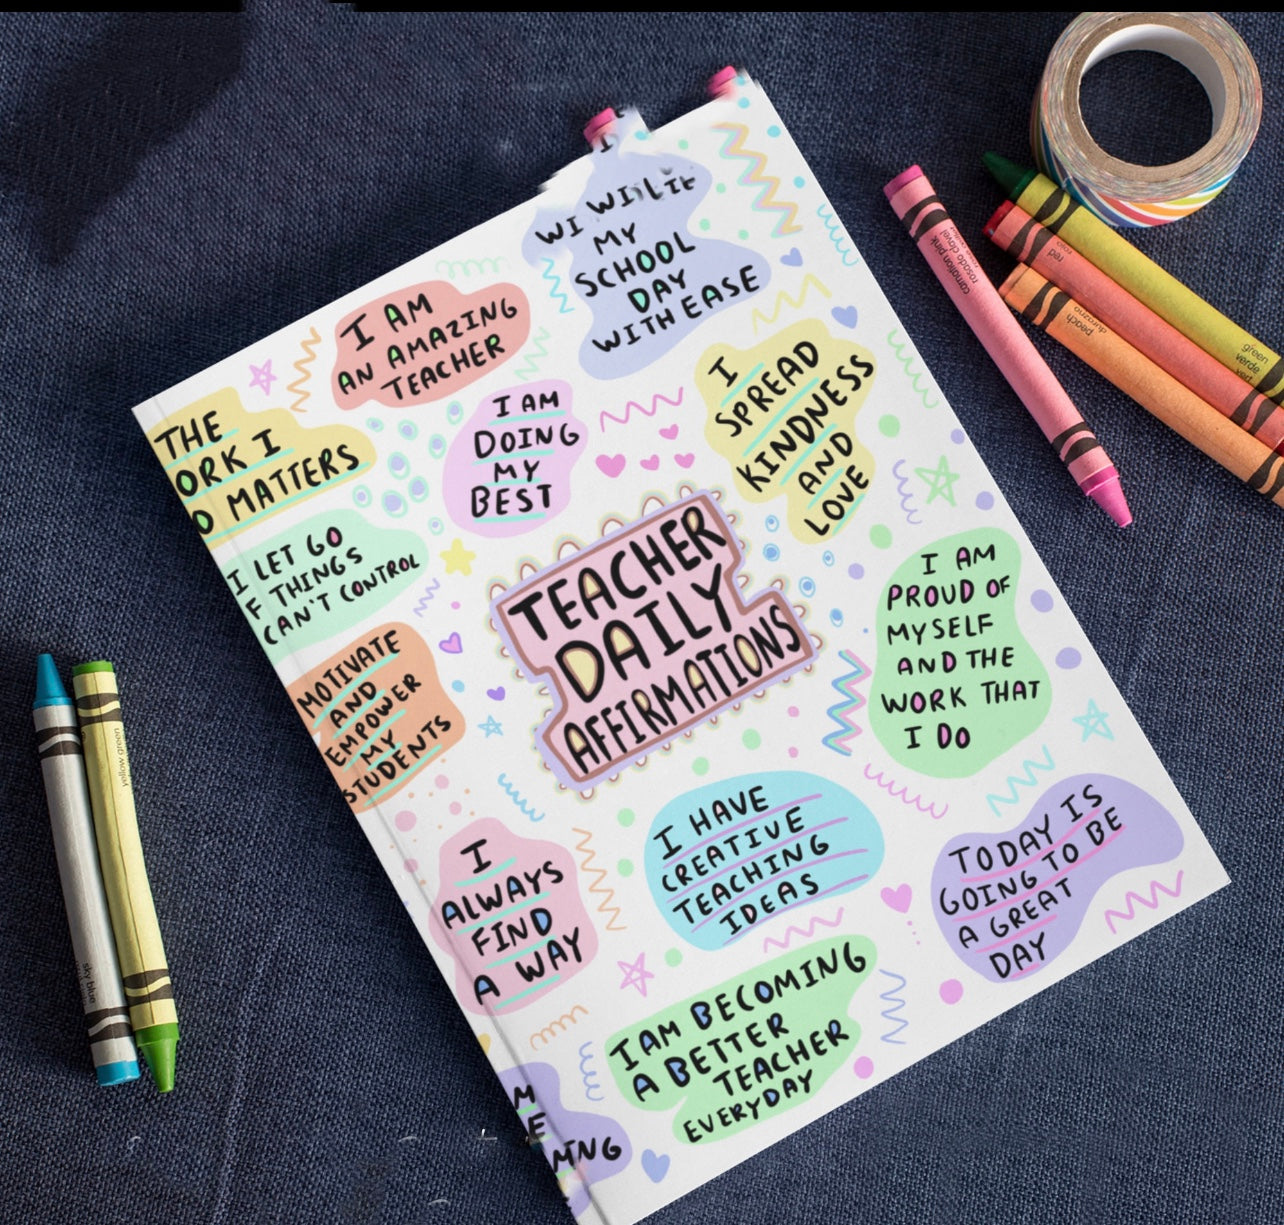 MY
SCHOOL
DAY
WITH EASE
I AM
AN AMAZING
TEACHER
THE
ORK I
O MATTERS
I AM
DOING
MY
BEST
I
SPREAD
KINDNESS
AND
LOVE
I LET GO
F THINGS
CAN'T CONTROL
TEACHER
DAILY
AFFIRMATIONS
I AM
PROUD OF
MYSELF
AND THE
WORK THAT
I DO
MOTIVATE
AND
EMPOWER
MY
STUDENTS
I
ALWAYS
FIND
A WAY
I HAVE
CREATIVE
TEACHING
IDEAS
TODAY IS
GOING TO BE
A GREAT
DAY
I AM BECOMING
A BETTER
TEACHER
EVERYDAY
M
E
carnation pink
rosado clavel
red
rojo
peach
durazno
green
verde
vert
yellow green
sky blue